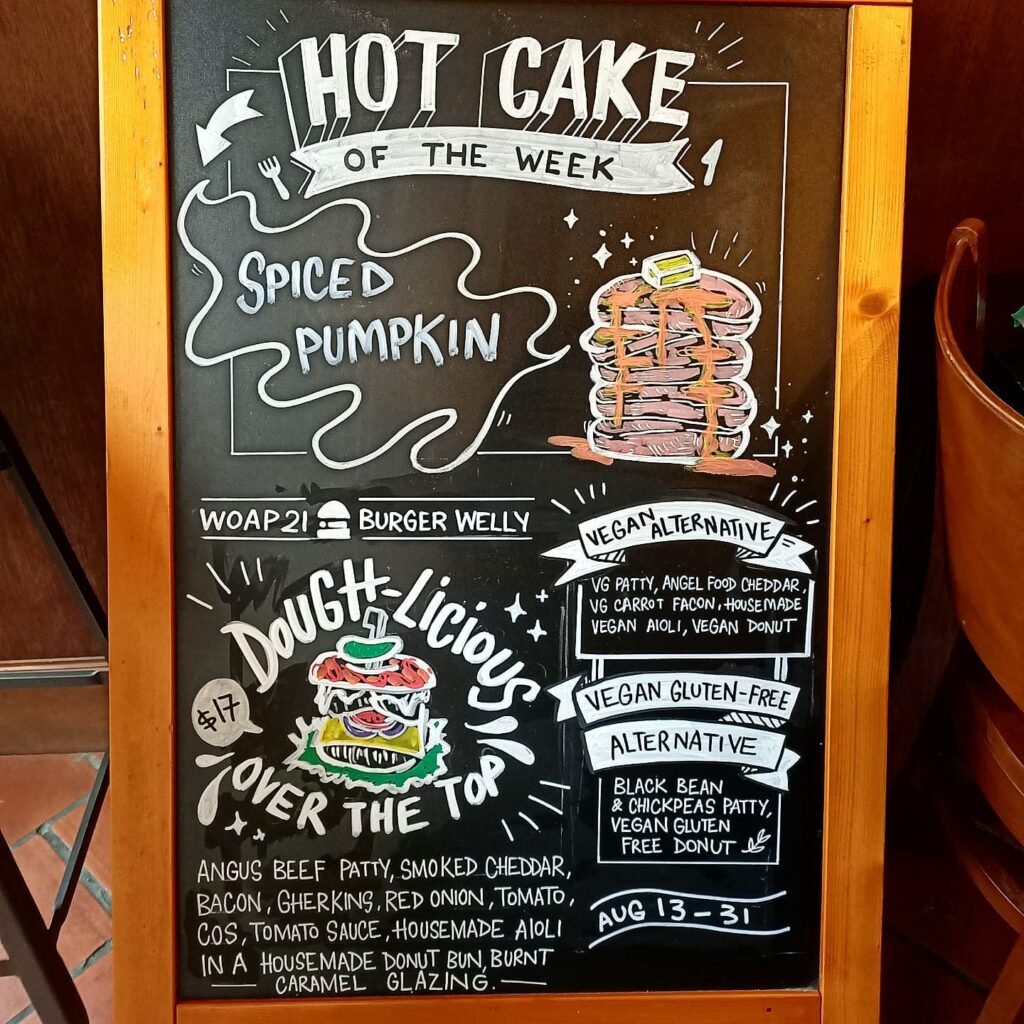 HOT CAKE
OF THE WEEK
SPICED
PUMPKIN
WOAP21 BURGER WELLY
DOUGH-LICIOUS
$17
OVER THE TOP
ANGUS BEEF PATTY, SMOKED CHEDDAR,
BACON, GHERKINS, RED ONION, TOMATO,
COS, TOMATO SAUCE, HOUSEMADE AIOLI
IN A HOUSEMADE DONUT BUN, BURNT
CARAMEL GLAZING.
VEGAN ALTERNATIVE
VG PATTY, ANGEL FOOD CHEDDAR,
VG CARROT FACON, HOUSEMADE
VEGAN AIOLI, VEGAN DONUT
VEGAN GLUTEN-FREE
ALTERNATIVE
BLACK BEAN
& CHICKPEAS PATTY,
VEGAN GLUTEN
FREE DONUT
AUG 13-31